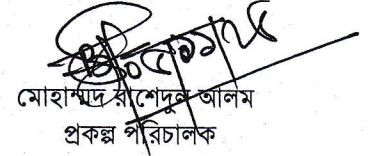 মোহাম্মদ রাশেদুল আলম
প্রকল্প পরিচালক